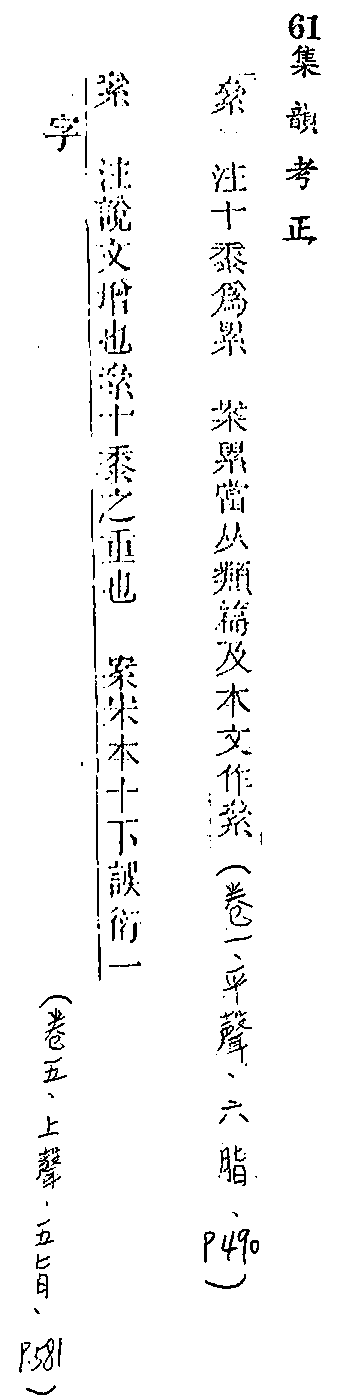 61集韻考正
絫 注十黍爲累 案累當从類篇及本文作絫(卷一、平聲、六脂、P490)
絫 注說文增也絫十黍之重也 案宋本十下誤衍一
字
(卷五、上聲、五旨、P.581)